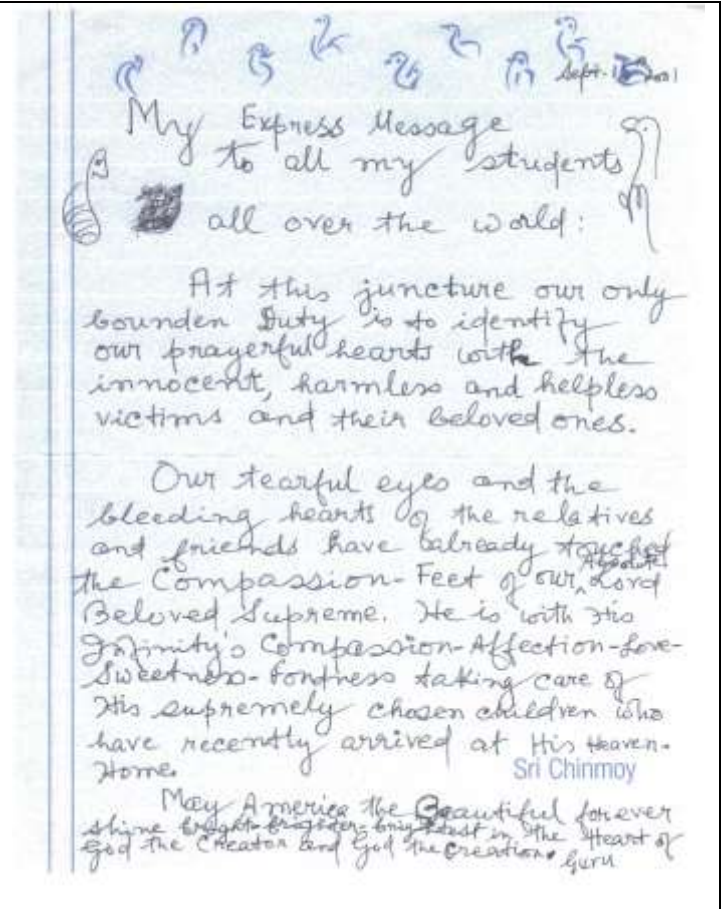 Sept. 2001
My Express Message
to all my students
all over the world:
At this juncture our only
bounden Duty is to identify
our prayerful hearts with the
innocent, harmless and helpless
victims and their beloved ones.
Our tearful eyes and the
bleeding hearts of the relatives
and friends have already touched
the Compassion-Feet of our Absolute Lord
Beloved Supreme. He is with His
Infinity's Compassion-Affection-Love-
Sweetness-Fondness taking care of
His supremely chosen children who
have recently arrived at His Heaven-
Home.
Sri Chinmoy
May America the Beautiful forever
shine bright-brighter-brightest in the Heart of
God the Creator and God the Creation.
Guru